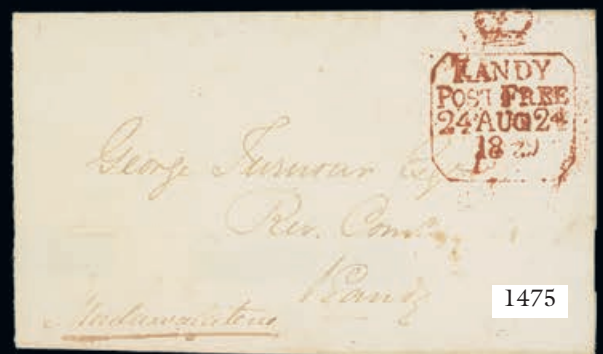 KANDY
POST FREE
24 AUG 24
18
George Turnour Esq
Rev. Com
Kandy
1475